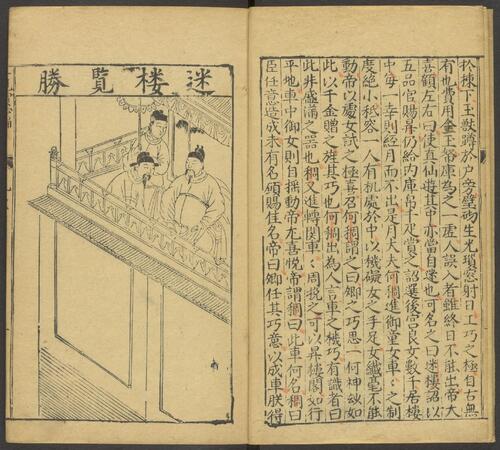 扵棟下玉獸蹲於戶旁壁砌生光瑣窓射日工巧之極自古無
有也費用金玉帑庫為之一虛人誤入者雖終日不能出帝大
喜顧左右曰使真仙遊其中亦當自迷也可名之曰迷樓詔以
五品官賜昇仍給內庫帛千疋賞之詔選後宮良女數千居樓
中每一幸則經月而不出是月大夫何稠進御童女車〻之制
度絕小秪容一人有机處於中以機礙女之手足女纖毫不能
動帝以處女試之極喜召何稠謂之曰卿之巧思一何神妙如
此以千金贈之旌其巧也何稠出為人言車之機巧有識者曰
此非盛滿之器也稠又進轉関車〻周挽之可以昇樓閣如行
平地車中御女則自搖動帝尤喜悅帝謂稠曰此車何名稠曰
臣任意造成未有名願賜佳名帝曰卿任其巧意以成車朕得
迷楼覽勝